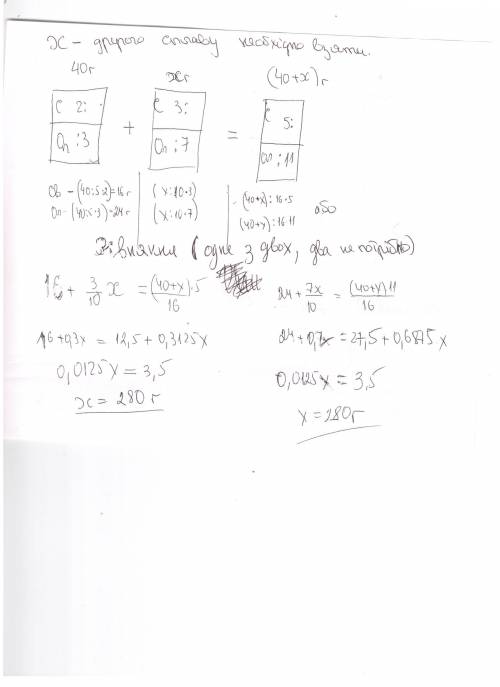 x - другого сплаву необхідно взяти.
40г xг (40+x)г
С 2: С 3: С 5:
Ол :3 + Ол :7 = Ол :11
Св - (40:5·2)=16г (x:10·3) - (40+x):16·5
Ол - (40:5·3)=24г (x:10·7) (40+x):16·11 або
Рівняння (одне з двох, два не потрібно)
16 + 3/10 x = (40+x)·5/16 24 + 7x/10 = (40+x)11/16
16+0,3x = 12,5+0,3125x 24+0,7x = 27,5+0,6875x
0,0125x = 3,5 0,0125x = 3,5
x = 280 г x = 280г